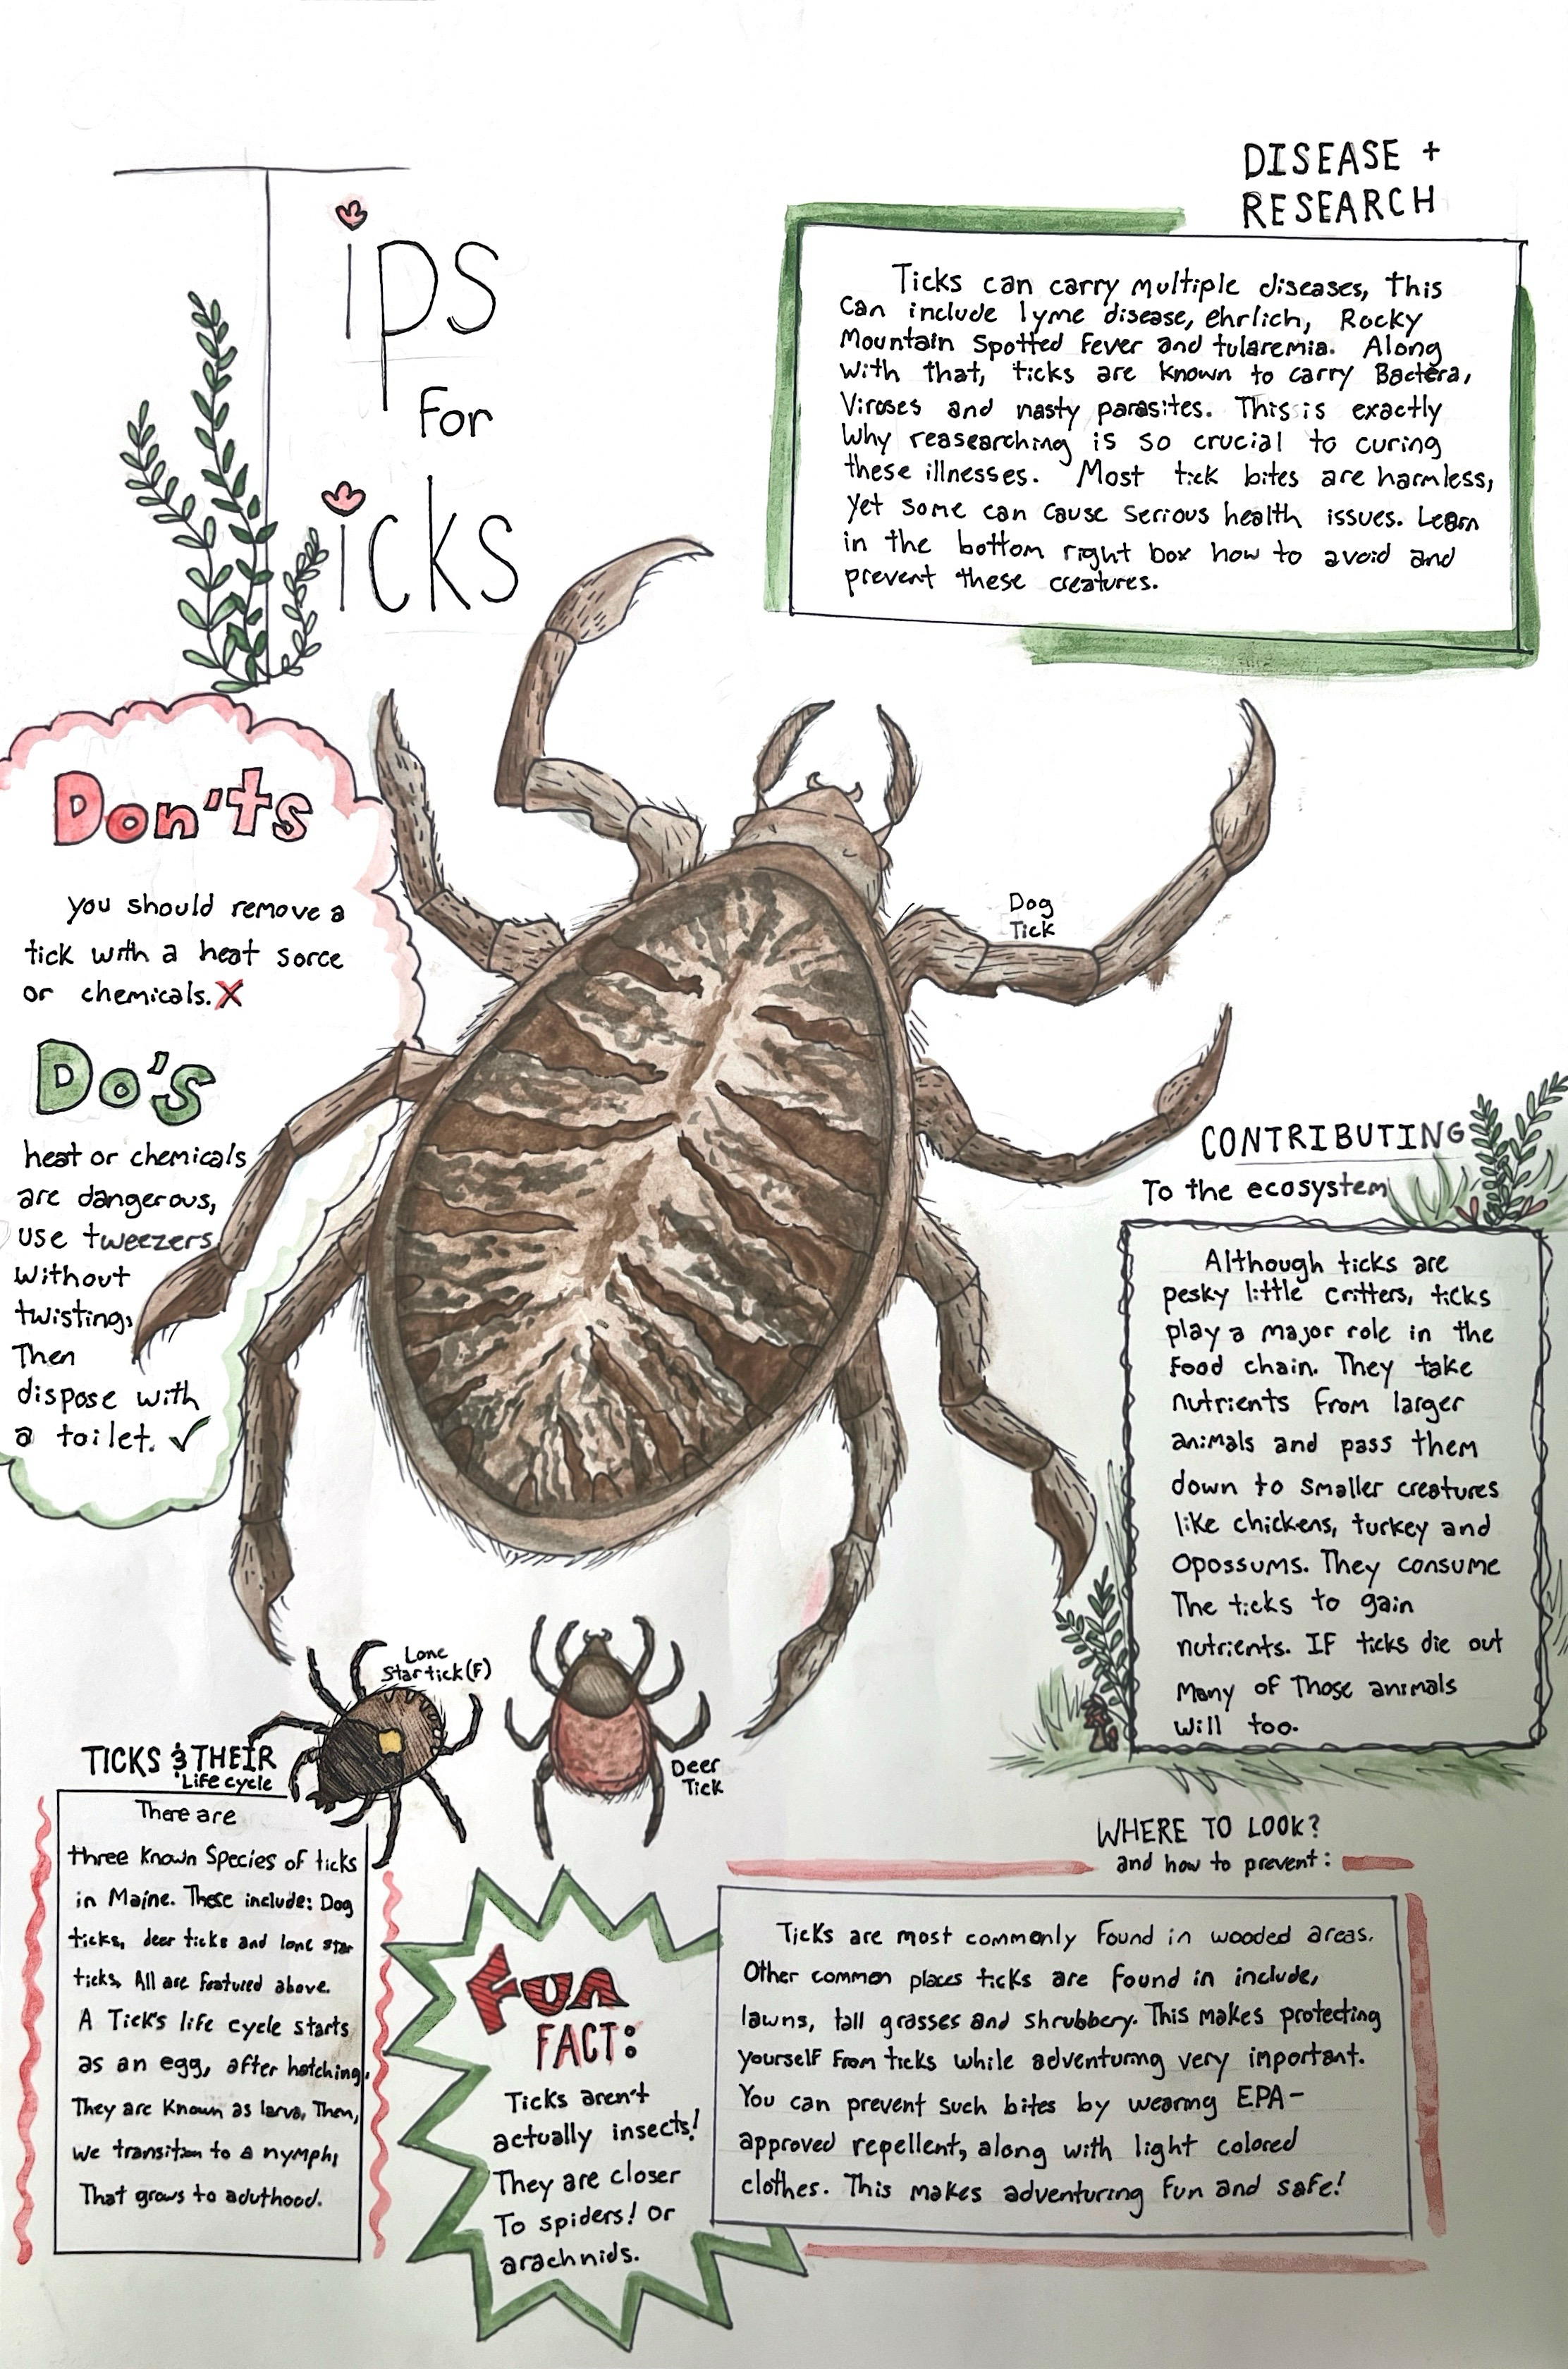 Tips
for
Ticks
DISEASE +
RESEARCH
Ticks can carry multiple diseases, this
can include lyme disease, ehrlich, Rocky
Mountain Spotted Fever and tularemia. Along
with that, ticks are known to carry Bactera,
Viroses and nasty parasites. This is exactly
why reasearching is so crucial to curing
these illnesses. Most tick bites are harmless,
yet some can cause serious health issues. Learn
in the bottom right box how to avoid and
prevent these creatures.
Don'ts
you should remove a
tick with a heat sorce
or chemicals. X
Do's
heat or chemicals
are dangerous,
use tweezers
without
twisting,
Then
dispose with
a toilet. ✓
Dog
Tick
CONTRIBUTING
To the ecosystem
Although ticks are
pesky little critters, ticks
play a major role in the
food chain. They take
nutrients from larger
animals and pass them
down to smaller creatures
like chickens, turkey and
opossums. They consume
The ticks to gain
nutrients. IF ticks die out
many of Those animals
will too.
Lone
Star tick (F)
Deer
Tick
TICKS & THEIR
Life cycle
There are
three known Species of ticks
in Maine. These include: Dog
ticks, deer ticks and lone star
ticks, All are featured above.
A Tick's life cycle starts
as an egg, after hatching,
They are known as larva, Then,
we transition to a nymph,
That grows to aduthood.
Fun
FACT:
Ticks aren't
actually insects!
They are closer
To spiders! Or
arachnids.
WHERE TO LOOK?
and how to prevent:
Ticks are most commonly found in wooded areas.
Other common places ticks are found in include,
lawns, tall grasses and shrubbery. This makes protecting
yourself from ticks while adventuring very important.
You can prevent such bites by wearing EPA-
approved repellent, along with light colored
clothes. This makes adventuring fun and safe!